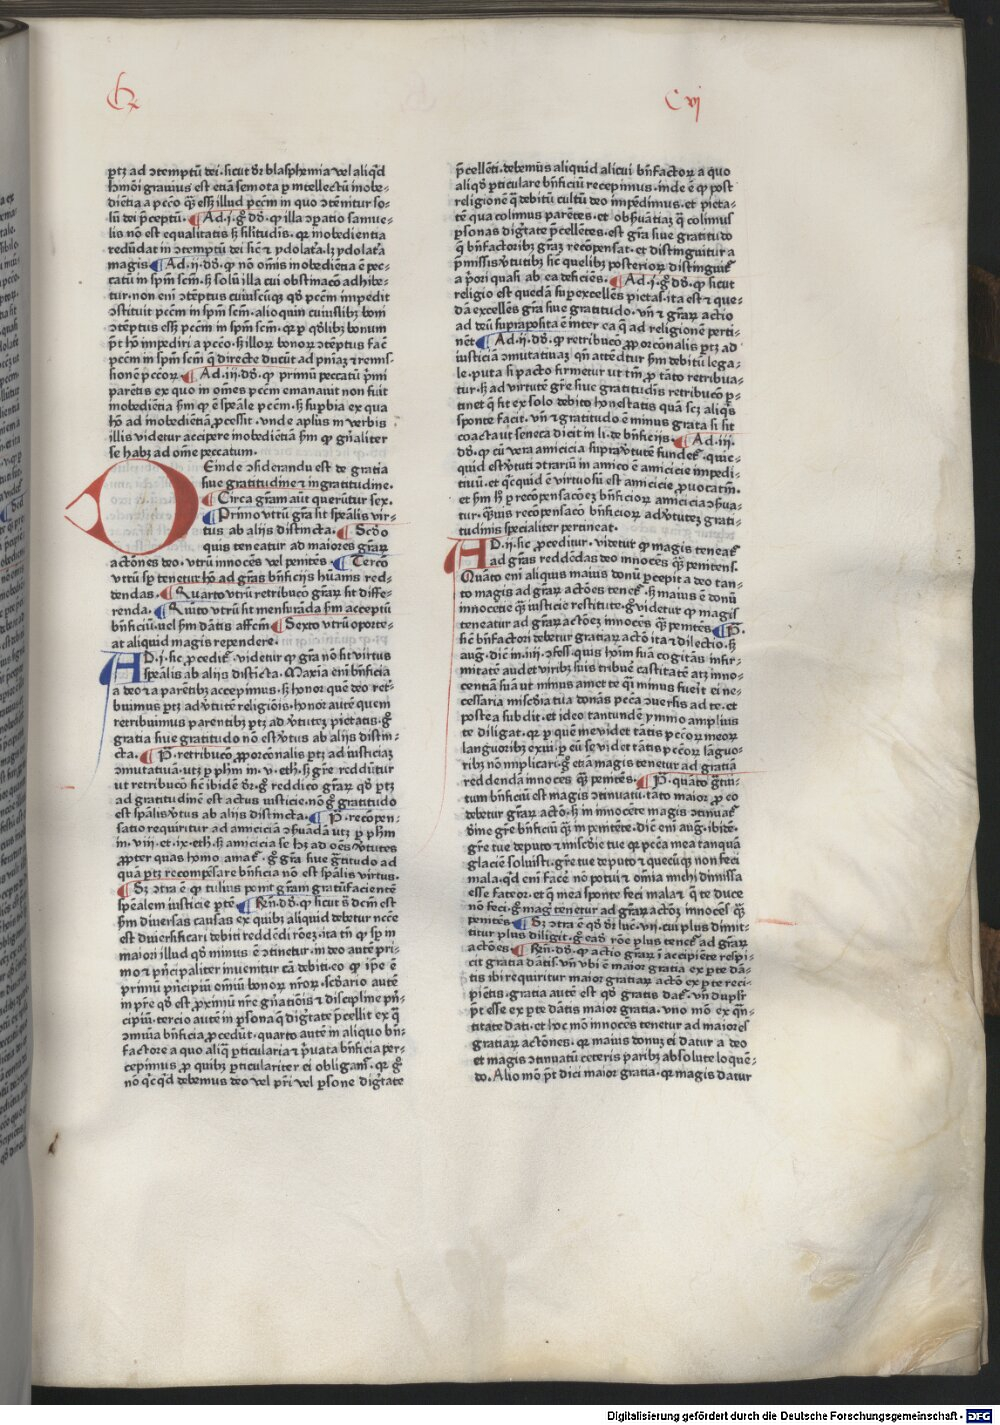 Cx
C vj
ptꝫ ad ɔtemptū dei. sicut dr̄ blasphemia vel aliqͥd
hmōi gravius est etiā semota p intellectū inobe-
diētia a pctō qꝫ eēt illud pctm̄ in quo ɔtēnitur so-
lū dei p̄ceptū. Ad .j. gͦ dd̄. ꝙ illa ɔpatio samue-
lis nō est equalitatis sꝫ silitudis. qꝛ inobedientia
redūdat in ɔtemptū dei sic̄ ⁊ ydolatʼa. lꝫ ydolatʼa
magis Ad .ij. dd̄. ꝙ nō omīs inobediētia ē pec-
catū in spm̄ scm̄. sꝫ solū illa cui obstinacō adhibe-
tur. non enī ɔtēptus cuiuscūqꝫ qd̄ pctm̄ impedit
ɔstituit pctm̄ in spm̄ scm̄. alioquin cuiuslibꝫ boni
ɔtēptus eēt pctm̄ in spm̄ scm̄. qꝛ p qd̄libꝫ bonum
pt̄ hō impediri a pctō. sꝫ illoꝝ bonoꝝ ɔtēptus facͭ
pctm̄ in spm̄ scm̄ q̄ directe ducūt ad pn̄iaꝫ ⁊ remis-
sionē pctōꝝ. Ad .iij. dd̄. ꝙ primū peccatū pͥmi
parētis ex quo in omēs pctm̄ emanauit non fuit
inobediētia ẜm ꝙ ē sp̄eāle pctm̄. sꝫ supbia ex qua
hō ad inobediētiā ꝓcessit. vnde aplus in verbis
illis videtur accipere inobediētiā ẜm ꝙ gn̄aliter
se habꝫ ad om̄e peccatum.
DEinde ɔsiderandū est de gratia
siue gratitudine ⁊ ingratitudine.
Circa gr̄am aūt querūtur sex.
Primo vtrū gr̄a sit sp̄eālis vir-
tus ab alijs distincta. Scd̄o
quis teneatur ad maiores gr̄aꝝ
actōnes deo. vtrū innocēs vel penitēs. Tercō
vtrū sp̄ tenetur hō ad gr̄as bn̄ficijs hūanis red-
dendas. Quarto vtrū retribucō gr̄aꝝ sit diffe-
renda. Quīto vtrū sit mensurāda ẜm acceptū
bn̄ficiū. vel ẜm dātis affcm̄ Sexto vtrū oporte-
at aliquid magis rependere.
AD .j. sic ꝓcedit̄. videtur ꝙ gr̄a nō sit virtus
sp̄eālis ab alijs disticta. Maxīa enī bn̄ficia
a deo ⁊ a parētibꝫ accepimus. sꝫ honor quē deo retͥ-
buimus ptꝫ ad vͥtutē religiōis. honor autē quem
retribuimus parentibꝫ ptꝫ ad vͥtutēꝫ pietatis. gͦ
gratia siue gratitudo nō est vͥtus ab alijs distin-
cta. P. retribucō ꝓporcōnalis ptꝫ ad iusticiaꝫ
ɔmutatiuā. vtꝫ p phm̄ in .v. eth. sꝫ gr̄e reddūtur
ut retribucō sic̄ ibidē dr̄. gͦ reddicō gr̄aꝝ qd̄ ptꝫ
ad gratitudinē est actus iusticie. nō gͦ gratitudo
est sp̄ālis vͥtus ab alijs distincta. P. recōpen-
satio requiritur ad amiciciā ɔẜuādā vtꝫ p phm̄
in .viij. et .ix. eth. sꝫ amicicia se hꝫ ad oēs vͥtutes
ꝓpter quas homo amat̄. gͦ gr̄a siue gͣtitudo ad
quā ptꝫ recompēsare bn̄ficia nō est sp̄ālis virtus.
Sꝫ ɔtra ē ꝙ tulius ponit gr̄am gratūfacientē
sp̄ealem iusticie ptē Rn̄. dd̄. ꝙ sicut s̄ dcm̄ est
ẜm diuersas causas ex quibꝫ aliquid debetur nēce
est diuersificari debiti reddēdi rōeꝫ. ita tn̄ ꝙ sp̄ in
maiori illud qd̄ minus ē ɔtinetur. in deo autē pri-
mo ⁊ pͥncipaliter inuenitur cā debiti. eo ꝙ ipē ē
primū pͥncipiū omiū bonoꝝ nr̄oꝝ. scd̄ario autē
in pr̄e qd̄ est ꝓximū nr̄e gn̄atiōis ⁊ discipline pͥn-
cipiū. tercio autē in psona q̄ digͥtate p̄cellit ex qͣ
ɔmūia bn̄ficia ꝓcedūt. quarto autē in aliquo bn̄-
factore a quo aliqͣ pticularia ⁊ pͥuata bn̄ficia per-
cepimus ꝓ quibꝫ pticulariter ei obligam̄. qꝛ gͦ
nō qͥcqͥd debemus deo vel pr̄i vel psone digͥtate
p̄cellēti. debemus aliquid alicui bn̄factoꝝ a quo
aliqͦd pticulare bn̄ficiū recepimus. inde ē ꝙ post
religionē q̄ debitū cultū deo impēdimus. et pieta-
tē qua colimus parētes. et obẜuātiaꝫ q̄ colimus
psonas digͥtate p̄cellētes. est gr̄a siue gratitudo
q̄ bn̄factoribꝫ gr̄aꝫ recōpensat. et distinguitur a
p̄missis vͥtutibꝫ sic̄ quelibꝫ posterioꝝ distinguit̄
a pͥori quasi ab ea deficiēs. Ad .j. gͦ dd̄. ꝙ sicut
religio est quedā supexcellēs pietas. ita est ⁊ que-
dā excellēs gr̄a siue gratitudo. vn̄ ⁊ gr̄aꝝ actio
ad deū supraposita ē inter ea q̄ ad religionē perti-
nēt Ad .ij. dd̄. ꝙ retribucō ꝓporcōnalis ptꝫ ad
iusticiā ɔmutatiuaꝫ qn̄ attēdūtur ẜm debitū lega-
le. puta si pacto firmetur ut tm̄ ꝓ tāto retribua-
tur. sꝫ ad virtutē gr̄e siue gratitudīs retribucō p-
tinet q̄ fit ex solo debito honestatis quā scꝫ aliqͥs
sponte facit. vn̄ ⁊ gratitudo ē minus grata si sit
coacta ut seneca dicit in li. de bn̄ficijs. Ad .iij.
dd̄. ꝙ cū vera amicicia supra vͥtute fundet̄. quic-
quid est vͥtuti ɔtrariū in amico ē amicicie impedi-
tiuū. et qͥcquid ē virtuosū est amicicie ꝓuocatiū.
et ẜm hͦ p recōpensacōeꝫ bn̄ficioꝝ amicicia ɔẜua-
tur. quīs recōpensacō bn̄ficioꝝ ad vͥtuteꝫ grati-
tudinis specialiter pertineat.
AD .ij. sic ꝓceditur. videtur ꝙ magis teneat̄
ad gr̄as reddēdas deo innocēs qͣꝫ penitens.
Quāto enī aliquis maius donū pcepit a deo tan-
to magis ad gr̄aꝝ actōes tenet̄. sꝫ maius ē donū
innocētie qͣꝫ iusticie restitute. gͦ videtur ꝙ magis
teneatur ad gr̄aꝝ actōeꝫ innocēs qͣꝫ penitēs P.
sic̄ bn̄factori debetur gratiaꝝ actō ita ⁊ dilectio. sꝫ
aug. dic̄ in .iiij. ɔfess. quis hoīm suā cogitās infir-
mitatē audet viribꝫ suis tribuē castitatē atꝫ inno-
centiā suā ut minus amet te qͣꝫ minus fueit ei ne-
cessaria mīa tua donās pctā ɔuersis ad te. et
postea subdit. et ideo tantundē ymmo amplius
te diligat. qꝛ p quē me videt tātis pctōꝝ meoꝝ
languoribꝫ exui. p eū se videt tātis pctōꝝ lāguo-
ribꝫ nō implicari. gͦ etiā magis tenetur ad gratiā
reddendā innocēs qͣꝫ penitēs. P. quāto gͣtui-
tum bn̄ficiū est magis ɔtinuatū. tāto maior ꝓ eo
debetur gr̄aꝝ actō. sꝫ in innocēte magis ɔtinuat̄
diuine gr̄e bn̄ficiū qͣꝫ in penitēte. dic̄ enī aug. ibidē.
gr̄e tue deputo ⁊ mīe tue qꝛ pctā mea tanquā
glaciē soluisti. gr̄e tue deputo ⁊ quecūqꝫ non feci
mala. qͥd enī facē nō potui ⁊ omīa michi dimissa
esse fateor. et q̄ mea sponte feci mala ⁊ q̄ te duce
nō feci. gͦ mag̓ tenetur ad gr̄aꝝ actōꝫ innocēs qͣꝫ
penitēs Sꝫ ɔtra ē qd̄ dr̄ luc̄ .vij. cui plus dimit-
titur plus diligit. gͦ eadē rōe plus tenet̄ ad gr̄aꝝ
actōes Rn̄. dd̄. ꝙ actio gr̄aꝝ ī accipiēte respi-
cit gratiā dātis. vn̄ vbi ē maior gratia ex pte dā-
tis ibi requiritur maior gratiaꝝ actō ex pte reci-
piētis. gratia autē est qd̄ gratis dat̄. vn̄ duplr̄
pt̄ esse ex pte dātis maior gratia. vno mō ex qͣn-
titate dati. et hoc mō innocēs tenetur ad maiores
gratiaꝝ actōnes. qꝛ maius donuꝫ ei datur a deo
et magis ɔtinuatū ceteris paribꝫ absolute loquē-
do. Alio mō pt̄ dici maior gratia. qꝛ magis datur
Digitalisierung gefördert durch die Deutsche Forschungsgemeinschaft - DFG